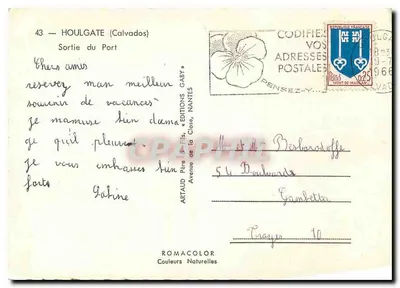 43 — HOULGATE (Calvados)
Sortie du Port
Chers amis
recevez mon meilleur
souvenir de vacances
je mamuse bien
je qu'il pleuve
je vous embrasse bien
forts
Sabine
ARTAUD Père & Fils, "EDITIONS GABY"
Avenue de la Close, NANTES
CODIFIEZ
VOS
ADRESSES
POSTALES
PENSEZ-Y...
REPUBLIQUE FRANCAISE
0,25
MONT-DE-MARSAN
M et Me Barbarotoffe
54 Boulevards
Gambetta
Troyes 10
ROMACOLOR
Couleurs Naturelles
CPArama.com